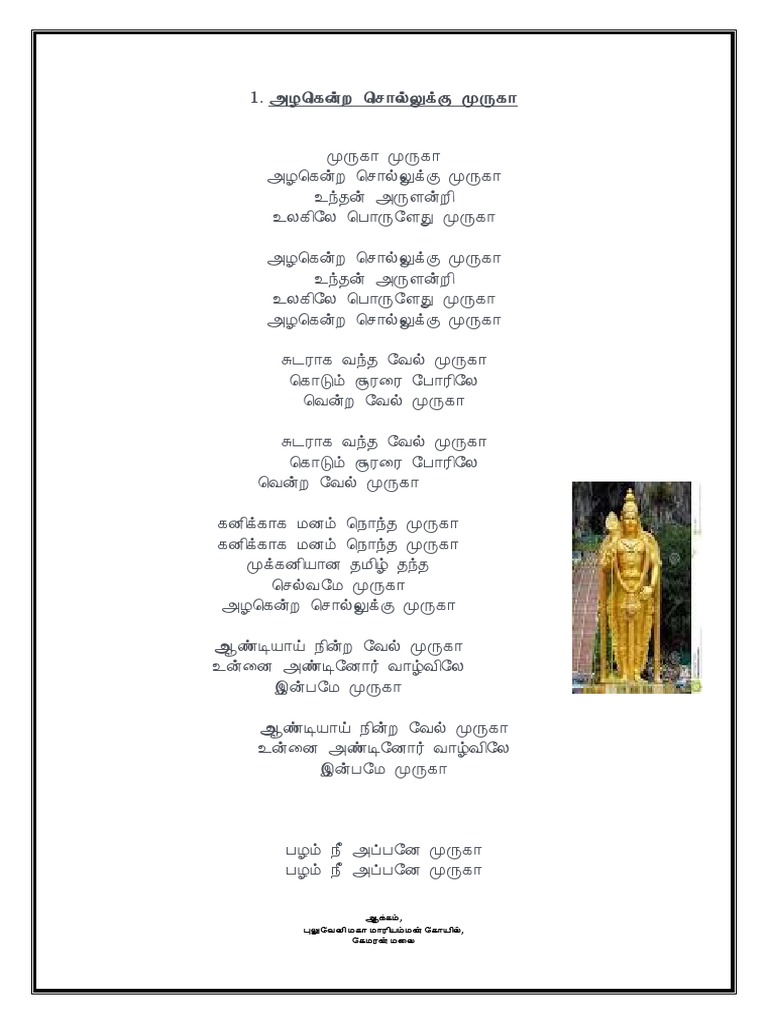 1. அழகென்ற சொல்லுக்கு முருகா
முருகா முருகா
அழகென்ற சொல்லுக்கு முருகா
உந்தன் அருளன்றி
உலகிலே பொருளேது முருகா
அழகென்ற சொல்லுக்கு முருகா
உந்தன் அருளன்றி
உலகிலே பொருளேது முருகா
அழகென்ற சொல்லுக்கு முருகா
சுடராக வந்த வேல் முருகா
கொடும் சூரரை போரிலே
வென்ற வேல் முருகா
சுடராக வந்த வேல் முருகா
கொடும் சூரரை போரிலே
வென்ற வேல் முருகா
கனிக்காக மனம் நொந்த முருகா
கனிக்காக மனம் நொந்த முருகா
முக்கனியான தமிழ் தந்த
செல்வமே முருகா
அழகென்ற சொல்லுக்கு முருகா
ஆண்டியாய் நின்ற வேல் முருகா
உன்னை அண்டினோர் வாழ்விலே
இன்பமே முருகா
ஆண்டியாய் நின்ற வேல் முருகா
உன்னை அண்டினோர் வாழ்விலே
இன்பமே முருகா
பழம் நீ அப்பனே முருகா
பழம் நீ அப்பனே முருகா
ஆக்கம்,
புலுவேலி மகா மாரியம்மன் கோயில்,
கேமரன் மலை